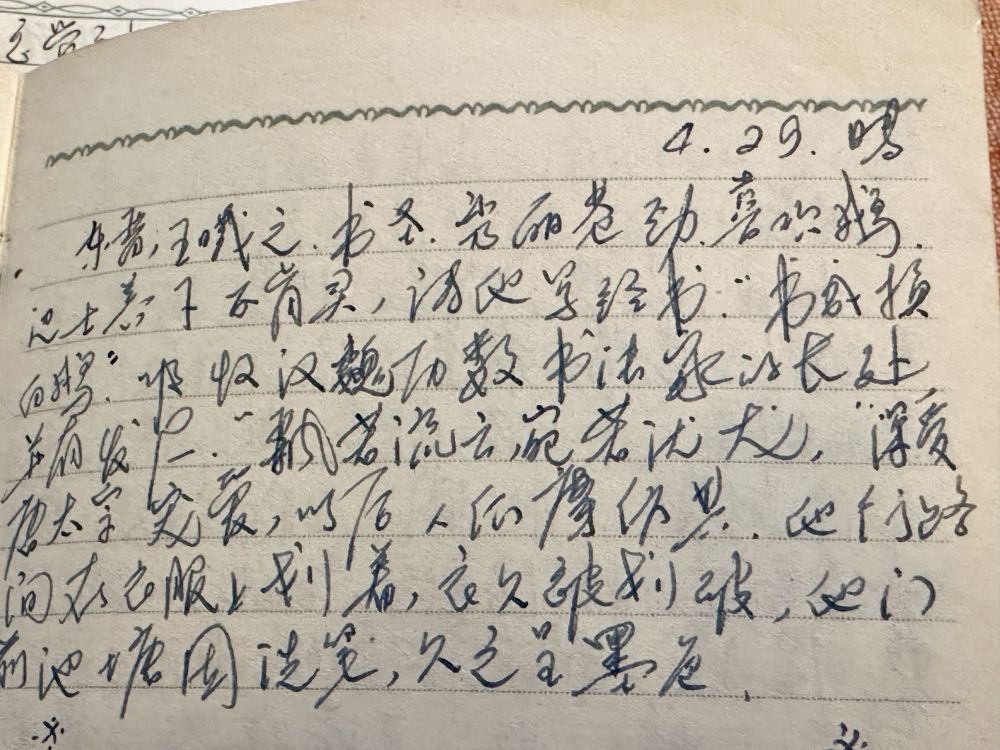 4.29. 晴
东晋,王羲之.书圣.秀丽苍劲.喜欢鹅.
道士养了不肯卖,请他写经书."书成换
白鹅."吸收汉魏历数书法家的长处,
并有发展."飘若流云,宛若沈龙,"深受
唐太宗宠爱,以后人们摩仿其.他行路
间在衣服上划着,衣久被划破,他门
前池塘因洗笔,久之呈墨色.